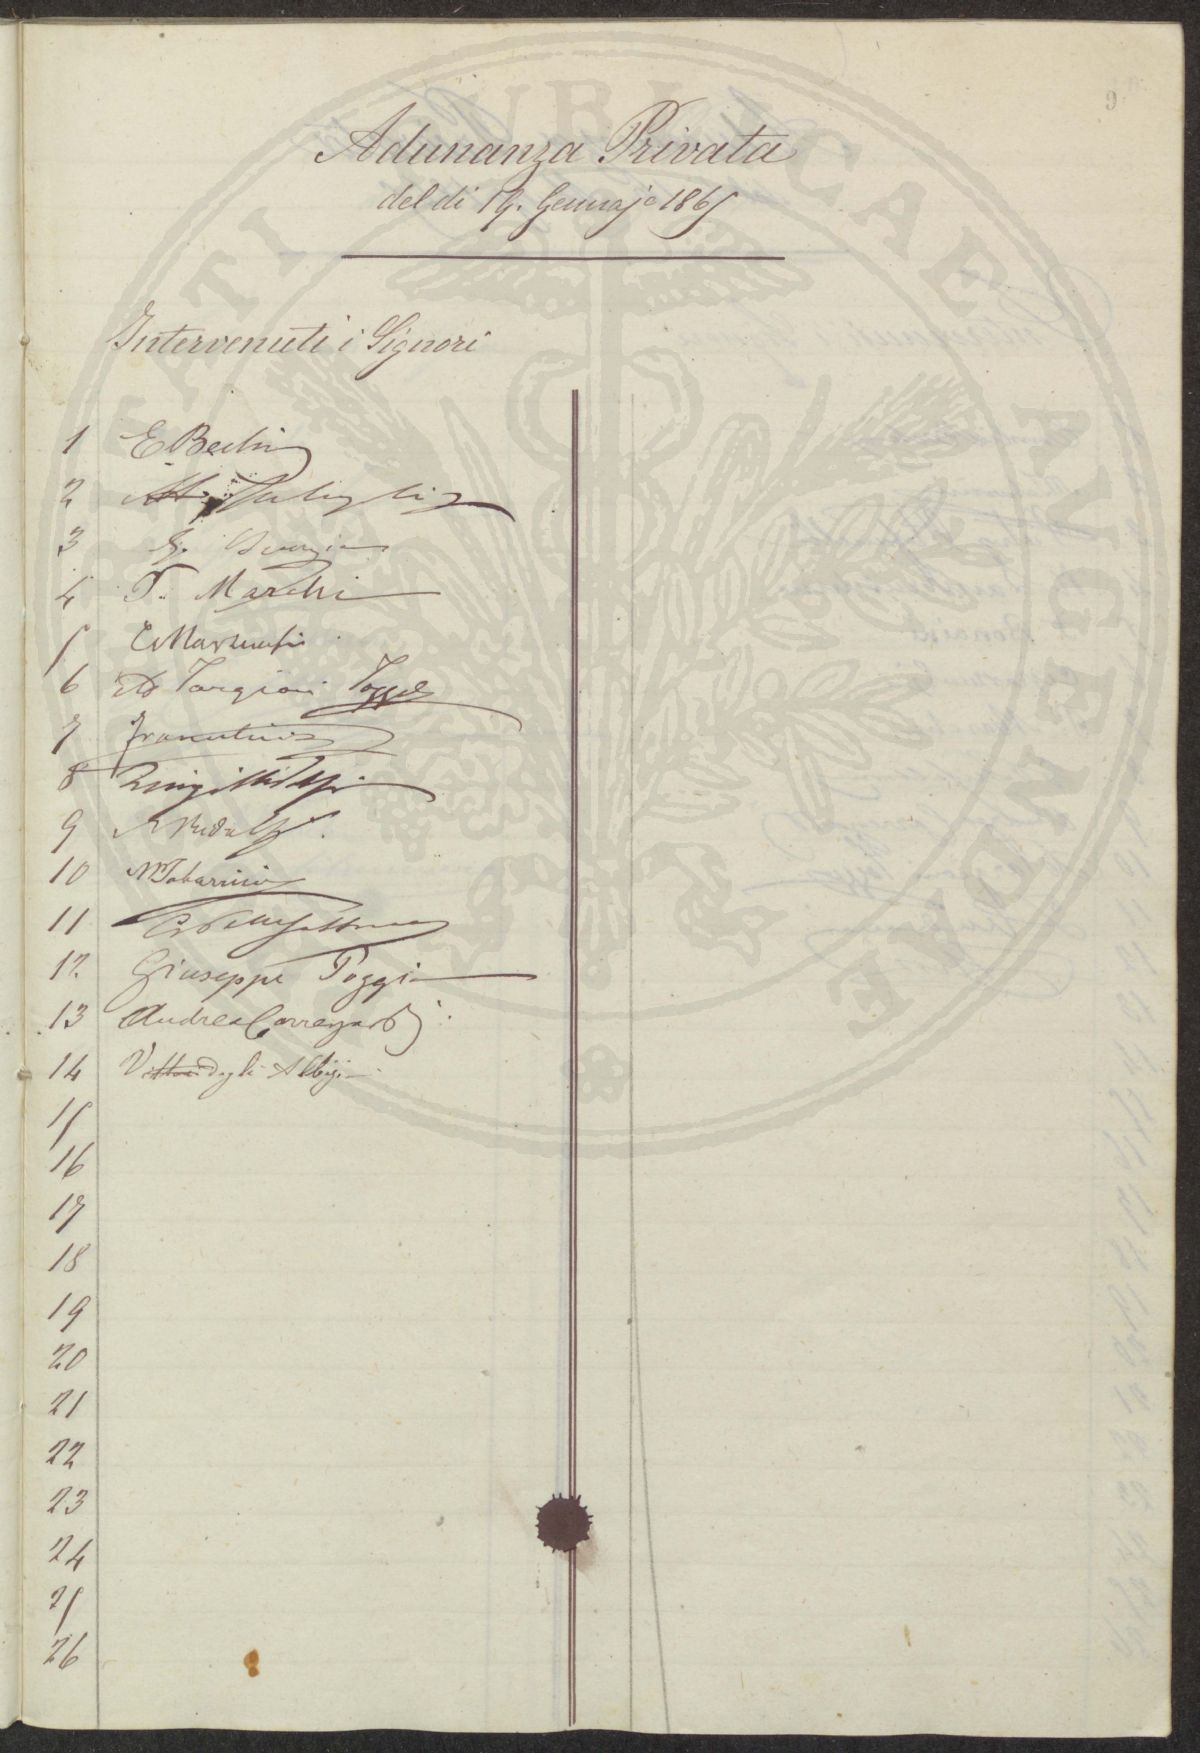 9
Adunanza Privata
del di 19. Gennajo 1865
Intervenuti i Signori
1 E Bechi
2
3 G.
4 T. Marchi
5 C Marzucchi
6 Ad Targioni Tozzetti
7 Franceschini
8 Luigi
9 Ridolfi.
10 M Tabarrini
11
12. Giuseppe Poggi
13 Andrea Correzardj
14 Vittorio degli Albizi
15
16
17
18
19
20
21
22
23
24
25
26
PUBLICAE AVGENDAE